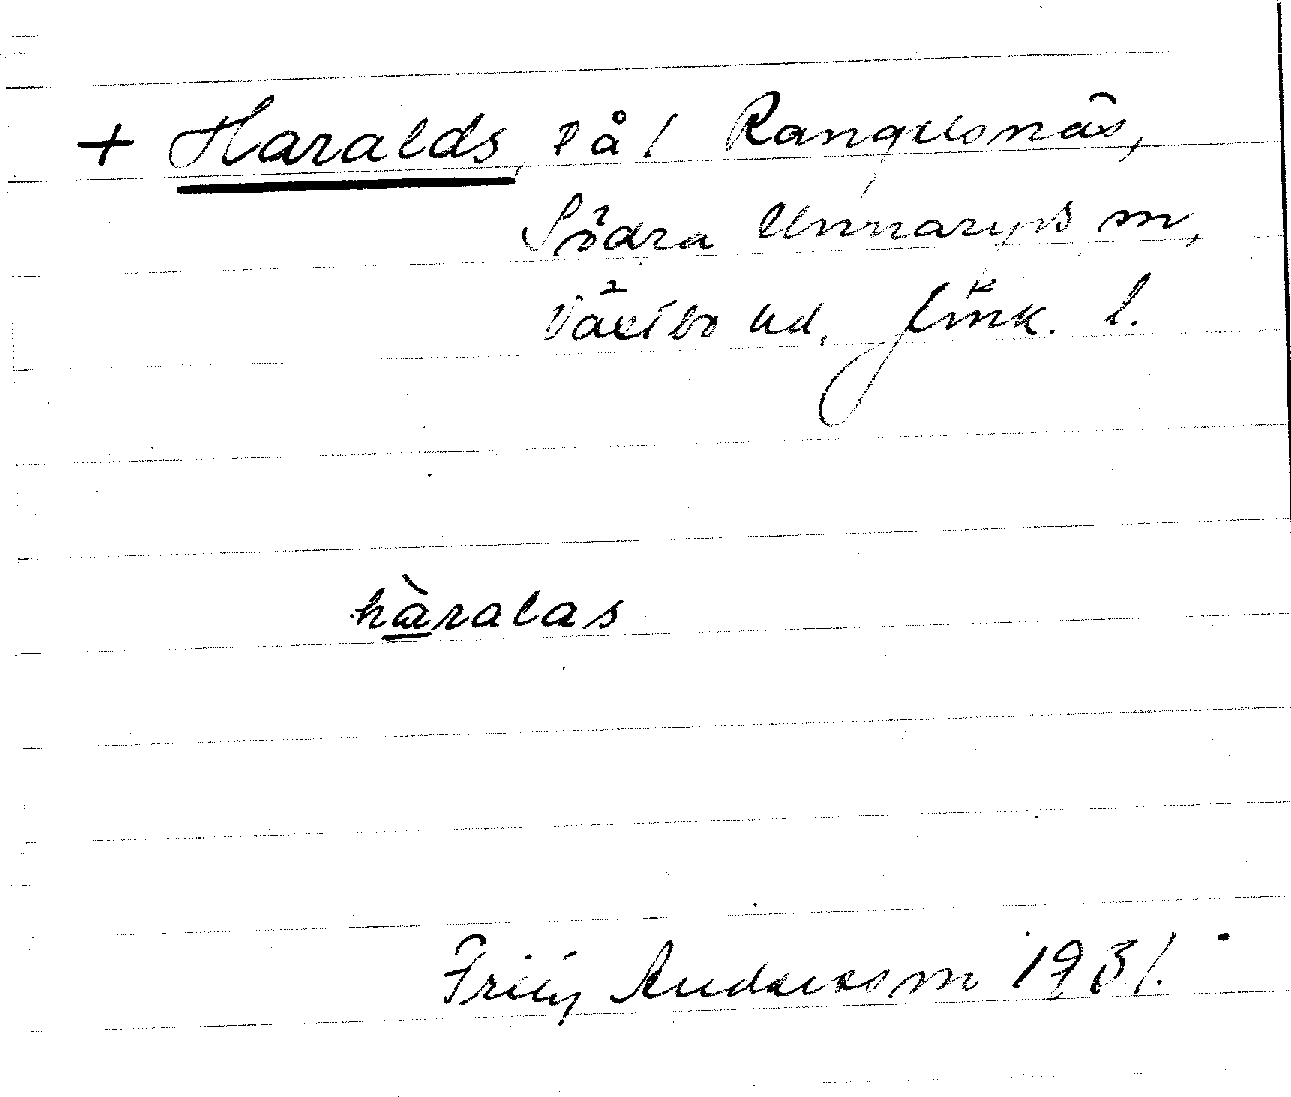 + Haralds, på / Rangelsnäs,
Södra Unnaryds sn,
Västbo hd, Jönk. l.
hàralas
Fritz Andersson 1931.